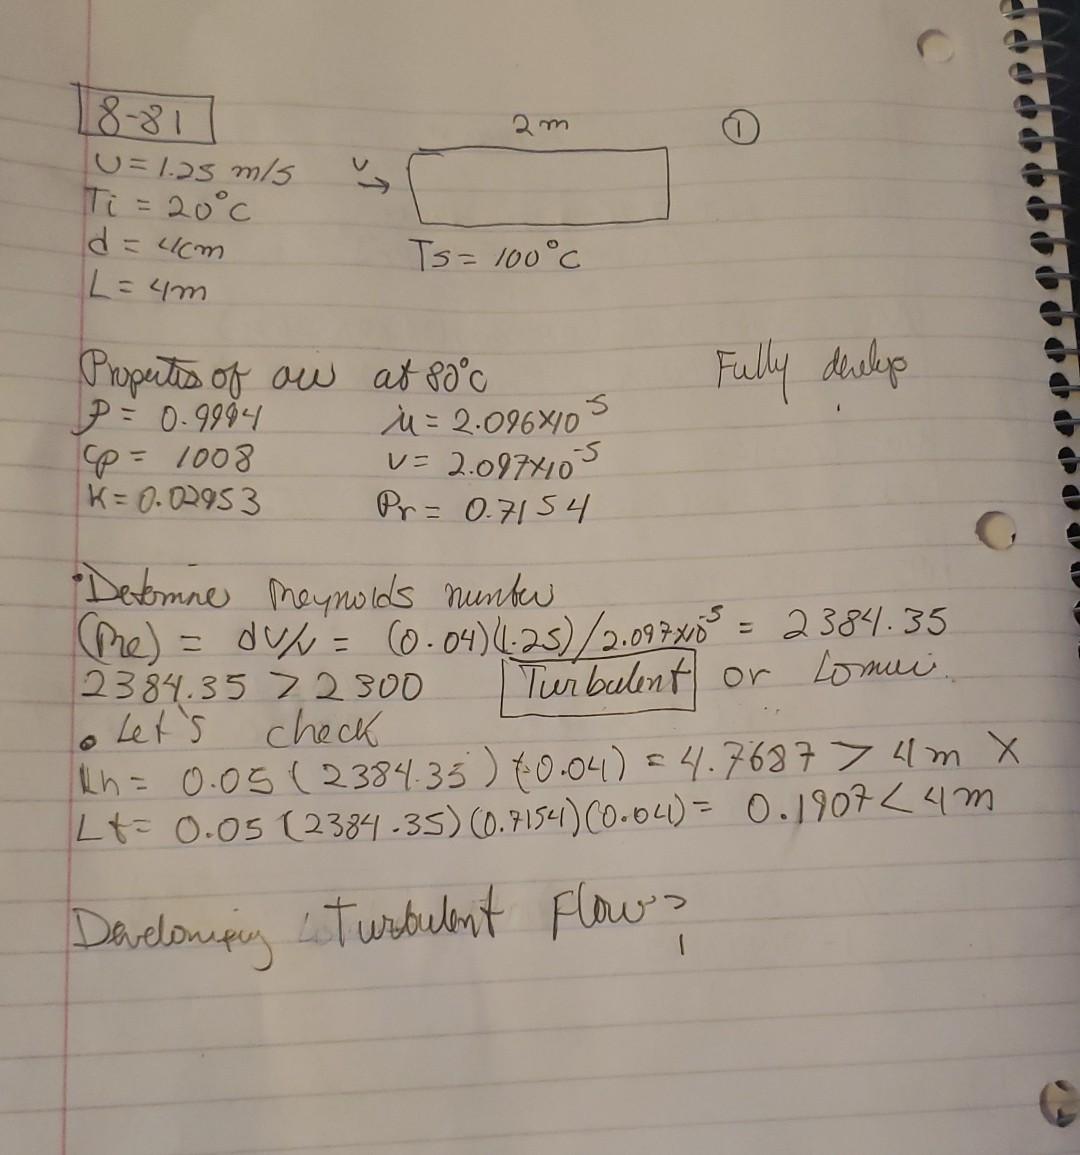 8-81
2m
①
U = 1.25 m/s
V →
Ti = 20°C
d = 4cm
Ts = 100°C
L = 4m
Properties of air at 80°C
Fully develop
ρ = 0.9994
μ = 2.096×10⁻⁵
Cp = 1008
ν = 2.097×10⁻⁵
K = 0.02953
Pr = 0.7154
• Determine Reynolds number
(Re) = dV/ν = (0.04)(1.25)/2.097×10⁻⁵ = 2384.35
2384.35 > 2300 Turbulent or
• Let's check
Lh = 0.05 (2384.35) (0.04) = 4.7687 > 4m X
Lt = 0.05 (2384.35)(0.7154)(0.04) = 0.1907 < 4m
Developing Turbulent Flow?